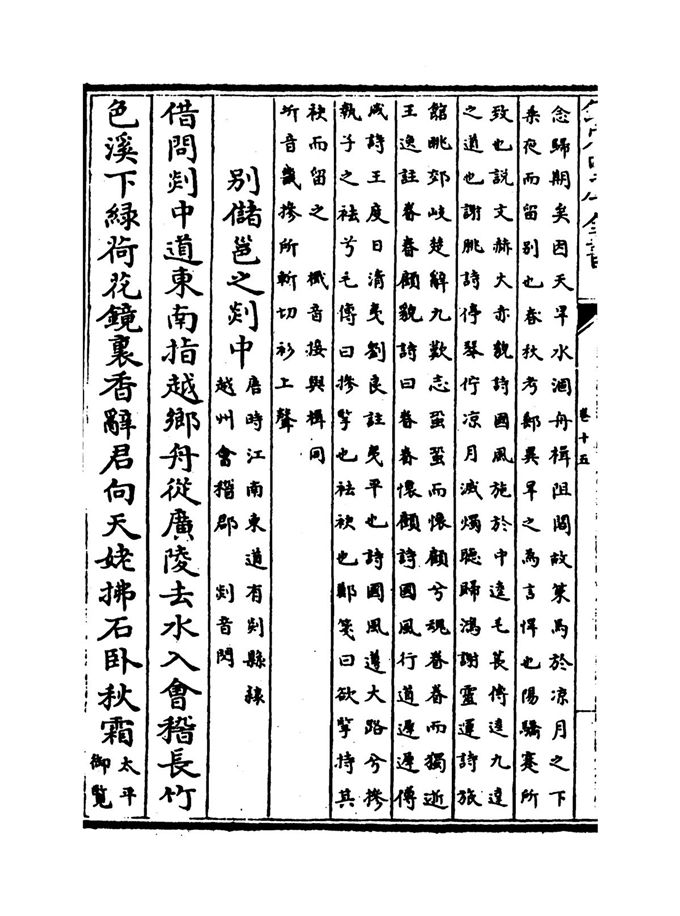 欽定四庫全書
卷十五
念歸期矣因天旱水涸舟楫阻閡故策馬於凉月之下
乘夜而留别也春秋考鄭異旱之為言悍也陽驕蹇所
致也説文赫大赤貌詩國風施於中逵毛萇傳逵九達
之道也謝朓詩停琴佇凉月滅燭聽歸鴻謝靈運詩旅
館眺郊岐楚辭九歎志蛩蛩而懷顧兮魂眷眷而獨逝
王逸註眷眷顧貌詩曰眷眷懷顧詩國風行道遲遲傅
咸詩王度日清夷劉良註夷平也詩國風遵大路兮摻
執子之袪兮毛傳曰摻擥也袪袂也鄭箋曰欲擥持其
袂而留之 檝音接與楫同
圻音畿摻所斬切衫上聲
别儲邕之剡中
唐時江南東道有剡縣隷
越州會稽郡 剡音閃
借問剡中道東南指越鄉舟從廣陵去水入會稽長竹
色溪下綠荷花鏡裏香辭君向天姥拂石卧秋霜
太平
御覽